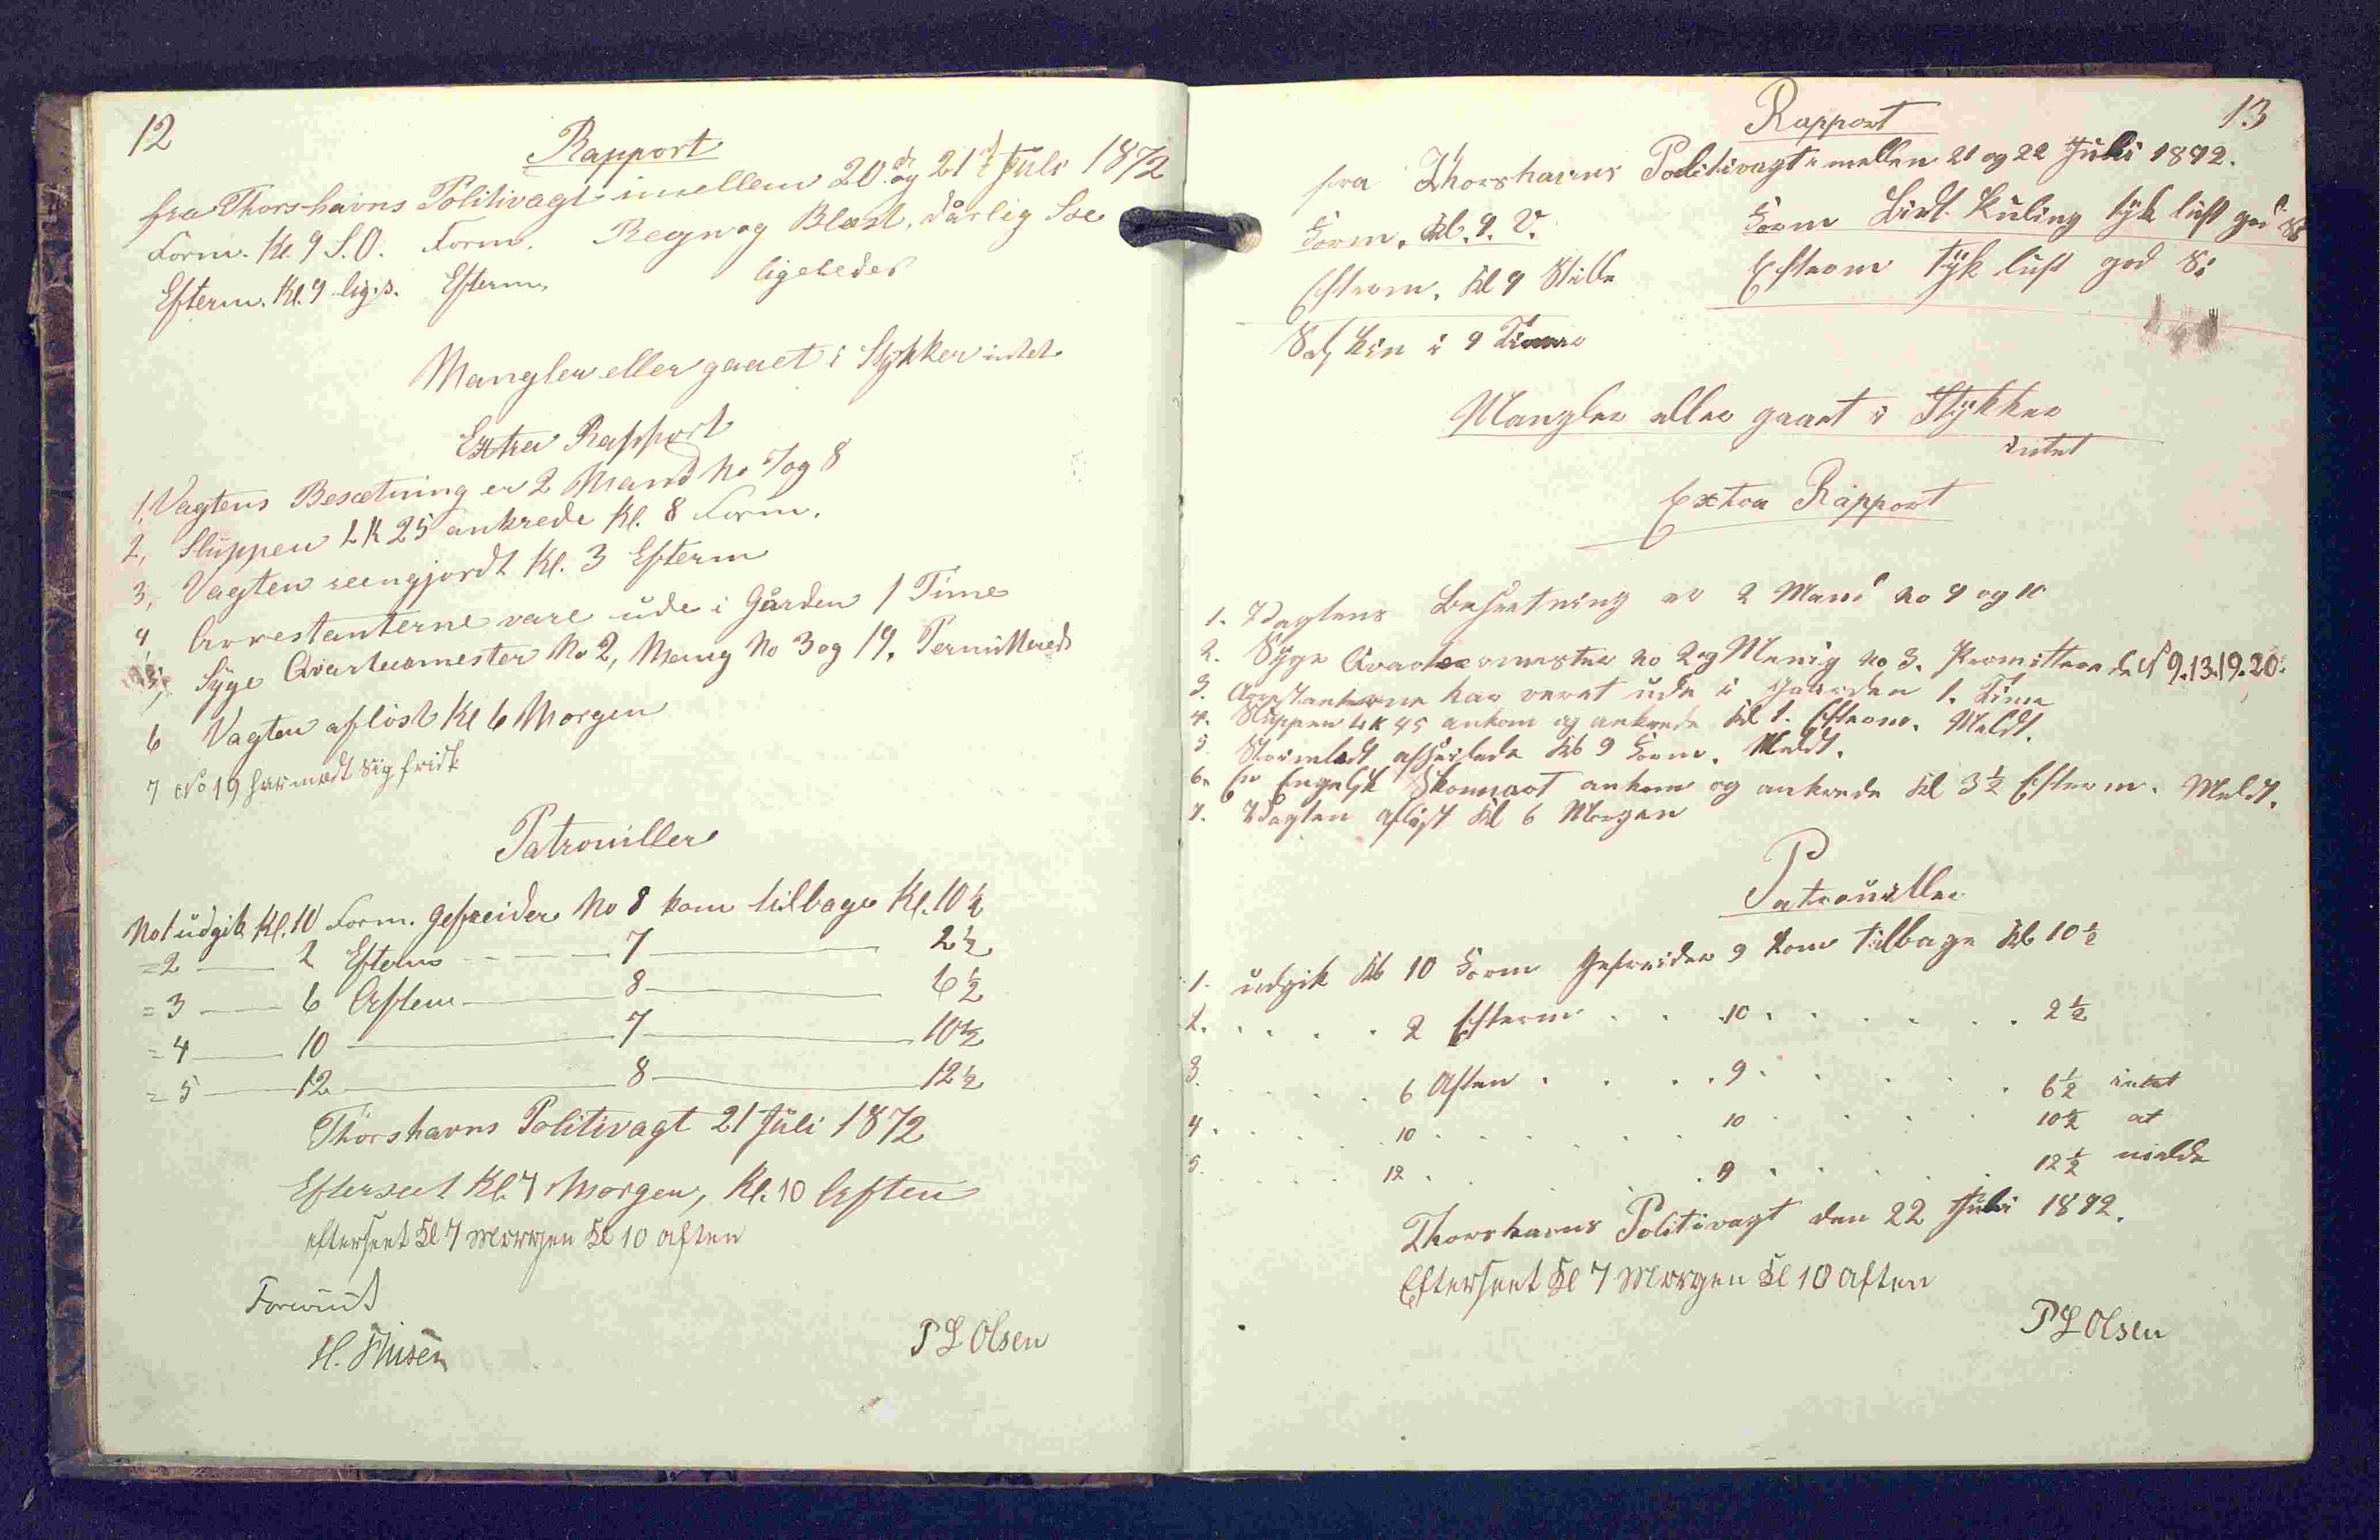 12
Rapport
fra Thorshavns Politivagt imellem 20de og 21de Juli 1872
Form. Kl. 9 S.O. Form. Regn og Blæst, dårlig Søe
Efterm. Kl. 9 lig.s. Efterm. ligeledes
Mangler eller gaaet i Stykker intet
Extra Rapport
1, Vagtens Besætning er 2 Mand No 7 og 8
2, Sluppen LK 25 ankrede Kl. 8 Form.
3, Vagten reengjordt Kl. 3 Efterm
4, Arrestanterne vare ude i Gården 1 Time
5, Syge Qvarteermester No 2, Menig No 3 og 19. Permitterede
6 Vagten aflöst Kl 6 Morgen
7 No 19 har mældt sig friskt
Patrouiller
No 1 udgik Kl. 10 Form. Gefreider No 8 kom tilbage Kl. 10½
=2 — 2 Efterm — 7 — 2½
=3 — 6 Aften — 8 — 6½
=4 — 10 — 7 — 10½
=5 — 12 — 8 — 12½
Thorshavns Politivagt 21 Juli 1872
Efterseet Kl. 7 Morgen, Kl. 10 Aften
efterseet Kl 7 Morgen Kl 10 aften
P L Olsen
13
Rapport
fra Thorshavns Politivagt imellem 21 og 22 Juli 1872.
Form. Kl. 9. V. Form Lidt Kuling tyk luft god Sø
Efterm. Kl 9 Stille Efterm tyk luft god Sø
i 9 Timer
Mangler eller gaaet i Stykker
intet
Extra Rapport
1. Vagtens Besætning er 2 Mand No 9 og 10
2. Syge Qvarteermester no 2 og Menig no 3. Permitterede No 9.13.19.20.
3. Arrestanterne har været ude i Gaarden 1. Time
4. Sluppen LK 45 ankom og ankrede Kl 1. Efterm. Meldt.
5. afseilede Kl 9 Form. Meldt.
6. En Engelsk Skonnart ankom og ankrede Kl 3½ Efterm. Meldt.
7. Vagten aflöst Kl 6 Morgen
Patrouiller
1. udgik Kl 10 Form Gefreider 9 kom tilbage Kl 10½
2. . . . . 2 Efterm . . 10 . . . . . . 2½
3. . . . . 6 Aften . . . 9 . . . . . 6½ intet
4 . . . . . 10 . . . . . 10 . . . . 10½ at
5. . . . . 12 . . . . 9 . . . . 12½ melde
Thorshavns Politivagt den 22 Juli 1872.
Efterseet Kl 7 Morgen Kl 10 Aften
P L Olsen